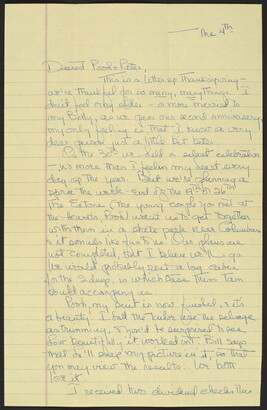 The 4th
Dearest Pooh & Peter,
This is a letter of Thanksgiving —
we're thankful for so many, many things. I
don't feel any older — or more married to
my Billy, as we near our second anniversary,
my only feeling is that I know a very
dear person just a little bit better.
On the 30th we held a silent celebration
— no more than I believe my heart every
day of the year. But we're planning a
spree the week-end of the 19th or 26th
The Eatons (the young couple you met at
the Hearts Pooh) want us to get together
with them in a state park near Columbus
& it sounds like fun to us. Our plans are
not completed, but I believe we'll go
We would probably rent a log cabin
for the 2 days, in which case Thin Tam
could accompany us.
Pooh, my suit is now finished & it's
a beauty! I had the tailor use the selvage
as trimming. & you'd be surprised to see
how beautifully it worked out. Bill says
that he'll snap my picture in it, so that
you may view the results. We both
love it.
I received two dividend checks this